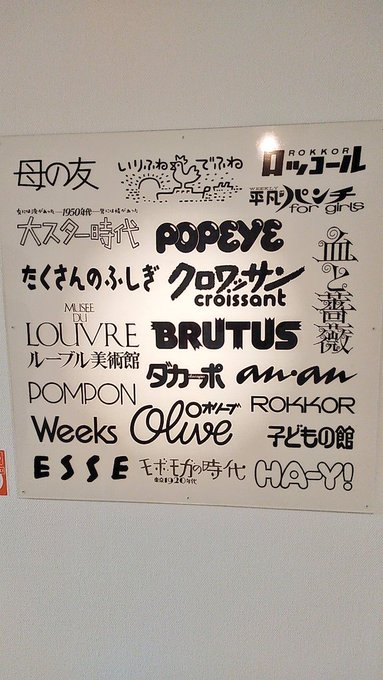 母の友
いりふねでふね
ROKKOR
ロッコール
WEEKLY
平凡パンチ
for girls
1950年代
大スター時代
POPEYE
血と薔薇
たくさんのふしぎ
クロワッサン
croissant
MUSEE
DU
LOUVRE
ルーブル美術館
BRUTUS
ダカーポ
an·an
POMPON
オリーブ
Olive
ROKKOR
Weeks
子どもの館
ESSE
モボ・モガの時代
東京1920年代
HA-Y!